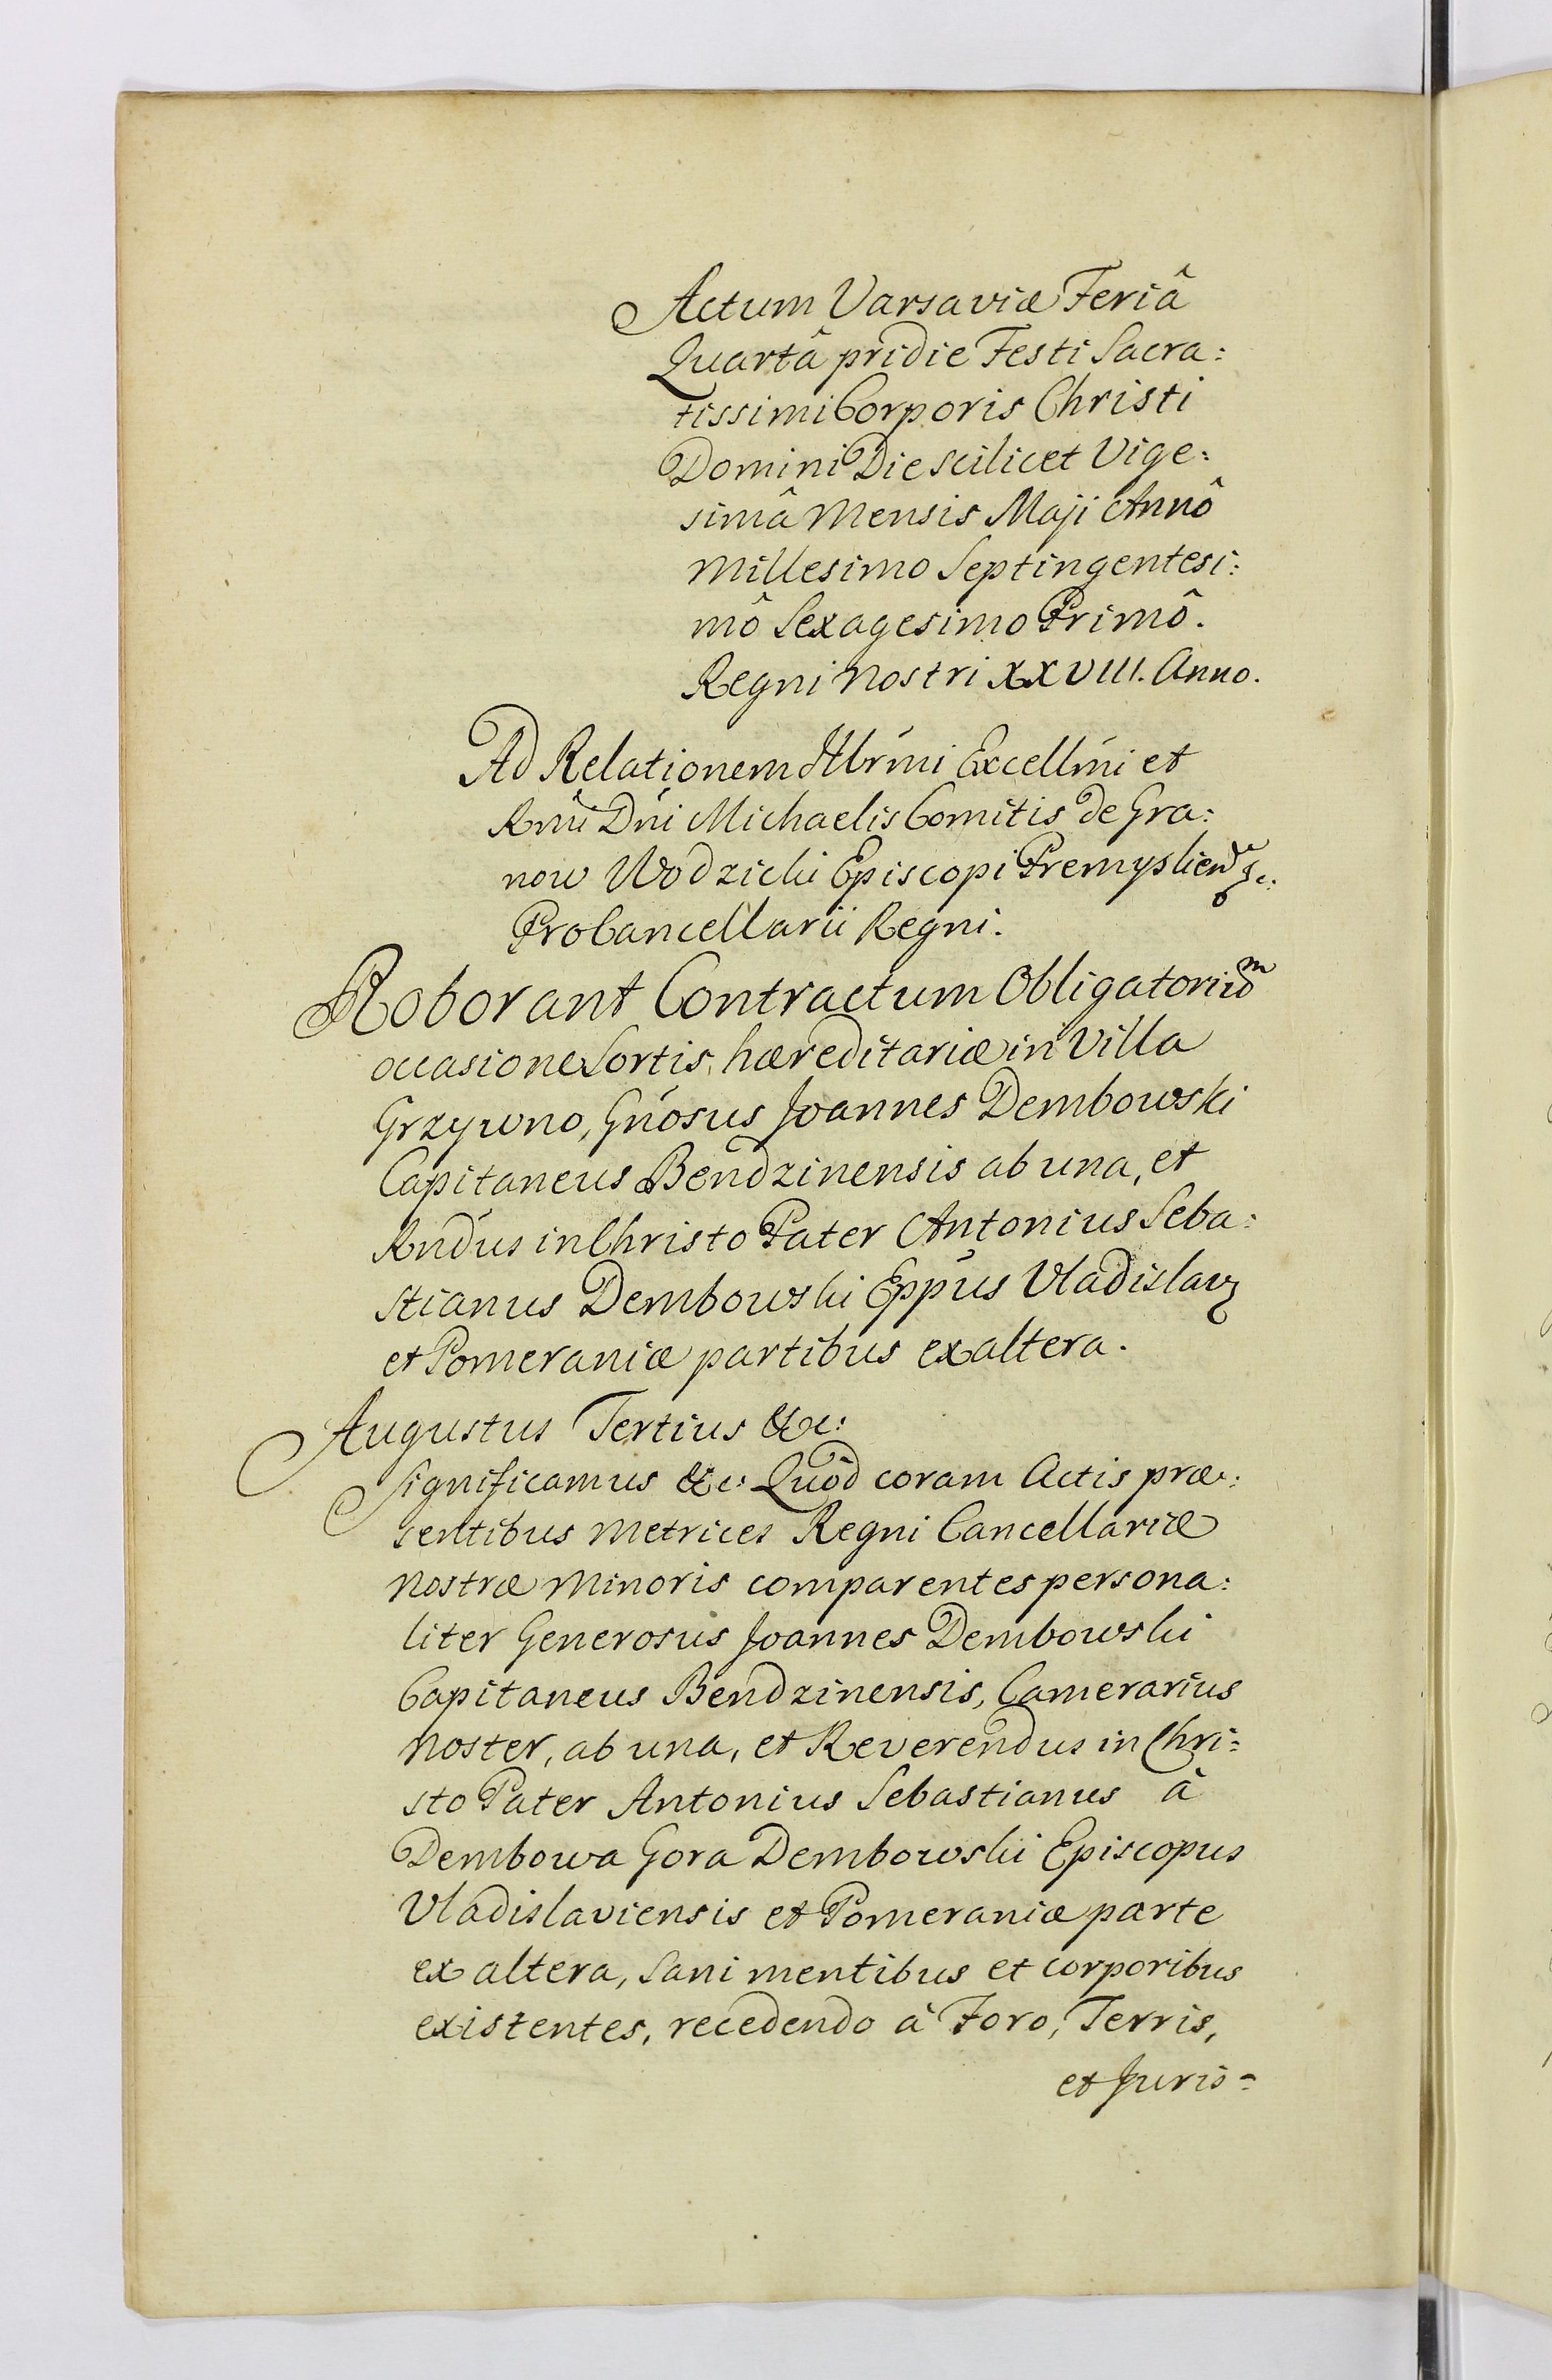 Actum Varsaviæ Feriâ
Quartâ pridie Festi Sacra:
tissimi Corporis Christi
Domini Die scilicet Vige:
simâ Mensis Maji Annô
Millesimo Septingentesi:
mô Sexagesimo Primô.
Regni Nostri XXVIII. Anno.
Ad Relationem Illrmi Excellmi et
Rmi Dni Michaelis Comitis de Gra:
now Wodzicki Episcopi Premyslien &c:
ProCancellarii Regni.
Roborant Contractum Obligatorium
occasione Sortis hæreditariæ in Villa
Grzywno, Gnosus Joannes Dembowski
Capitaneus Bendzinensis ab una, et
Rndus in Christo Pater Antonius Seba:
stianus Dembowski Eppus Vladislav
et Pomeraniæ partibus ex altera.
Augustus Tertius &c:
Significamus &c: Quòd coram Actis præ:
sentibus Metrices Regni Cancellariæ
Nostræ Minoris comparentes persona:
liter Generosus Joannes Dembowski
Capitaneus Bendzinensis, Camerarius
Noster, ab una, et Reverendus in Chri:
sto Pater Antonius Sebastianus à
Dembowa Gora Dembowski Episcopus
Vladislaviensis et Pomeraniæ parte
ex altera, Sani mentibus et corporibus
existentes, recedendo à Foro, Terris,
et Juris=